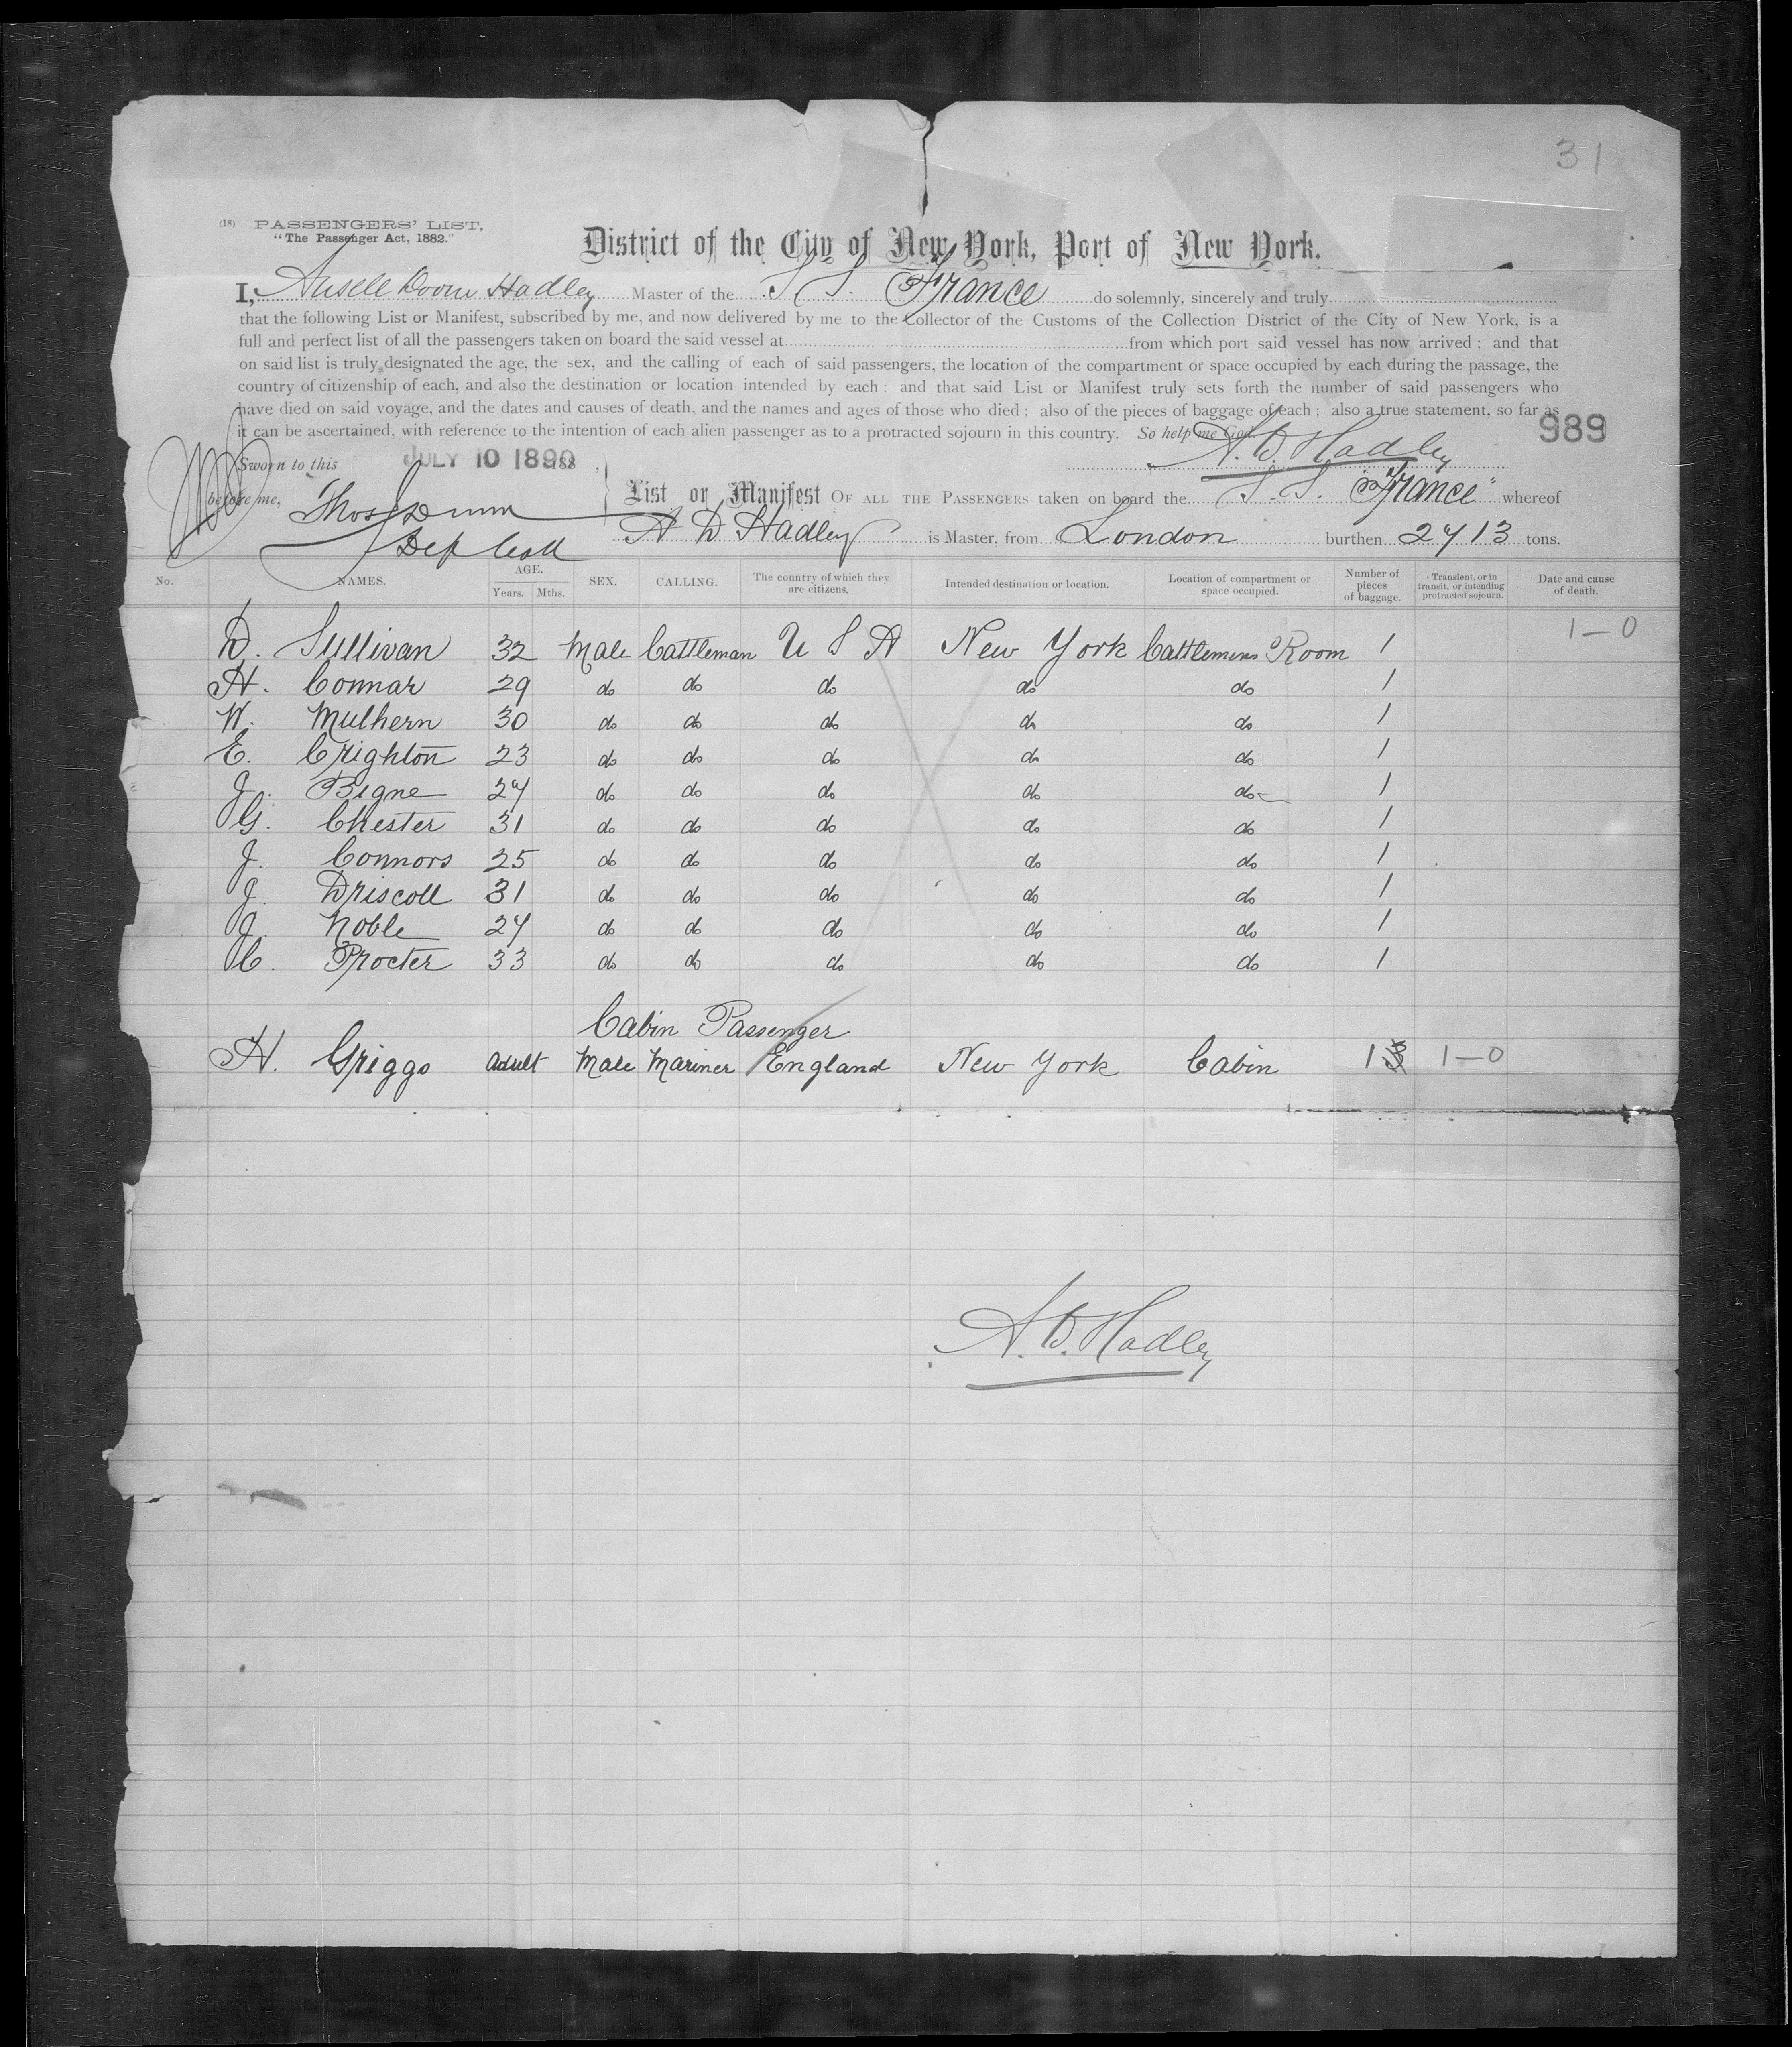 31
(18) PASSENGERS' LIST.
"The Passenger Act, 1882."
District of the City of New York, Port of New York.
I, Hadley Master of the S S. France do solemnly, sincerely and truly
that the following List or Manifest, subscribed by me, and now delivered by me to the Collector of the Customs of the Collection District of the City of New York, is a
full and perfect list of all the passengers taken on board the said vessel at from which port said vessel has now arrived; and that
on said list is truly designated the age, the sex, and the calling of each of said passengers, the location of the compartment or space occupied by each during the passage, the
country of citizenship of each, and also the destination or location intended by each: and that said List or Manifest truly sets forth the number of said passengers who
have died on said voyage, and the dates and causes of death, and the names and ages of those who died; also of the pieces of baggage of each; also a true statement, so far as
it can be ascertained, with reference to the intention of each alien passenger as to a protracted sojourn in this country. So help me God.
989
A. D. Hadley
Sworn to this JULY 10 1890 188 ,
before me, Thos Dunn
Dep Coll
List or Manifest OF ALL THE PASSENGERS taken on board the S. S. "France" whereof
A D Hadley is Master, from London burthen 2713 tons.
No. NAMES. AGE. Years. Mths. SEX. CALLING. The country of which they are citizens. Intended destination or location. Location of compartment or space occupied. Number of pieces of baggage. Transient, or in transit, or intending protracted sojourn. Date and cause of death.
1-0
D. Sullivan 32 Male Cattleman U S A New York Cattlemens Room 1
H. Connar 29 do do do do do 1
W. Mulhern 30 do do do do do 1
E. Crighton 23 do do do do do 1
J. Bigne 27 do do do do do 1
G. Chester 31 do do do do do 1
J. Connors 25 do do do do do 1
J. Driscoll 31 do do do do do 1
J. Noble 27 do do do do do 1
C. Procter 33 do do do do do 1
Cabin Passenger
H. Griggs adult Male Mariner England New York Cabin 13 1-0
A. D. Hadley